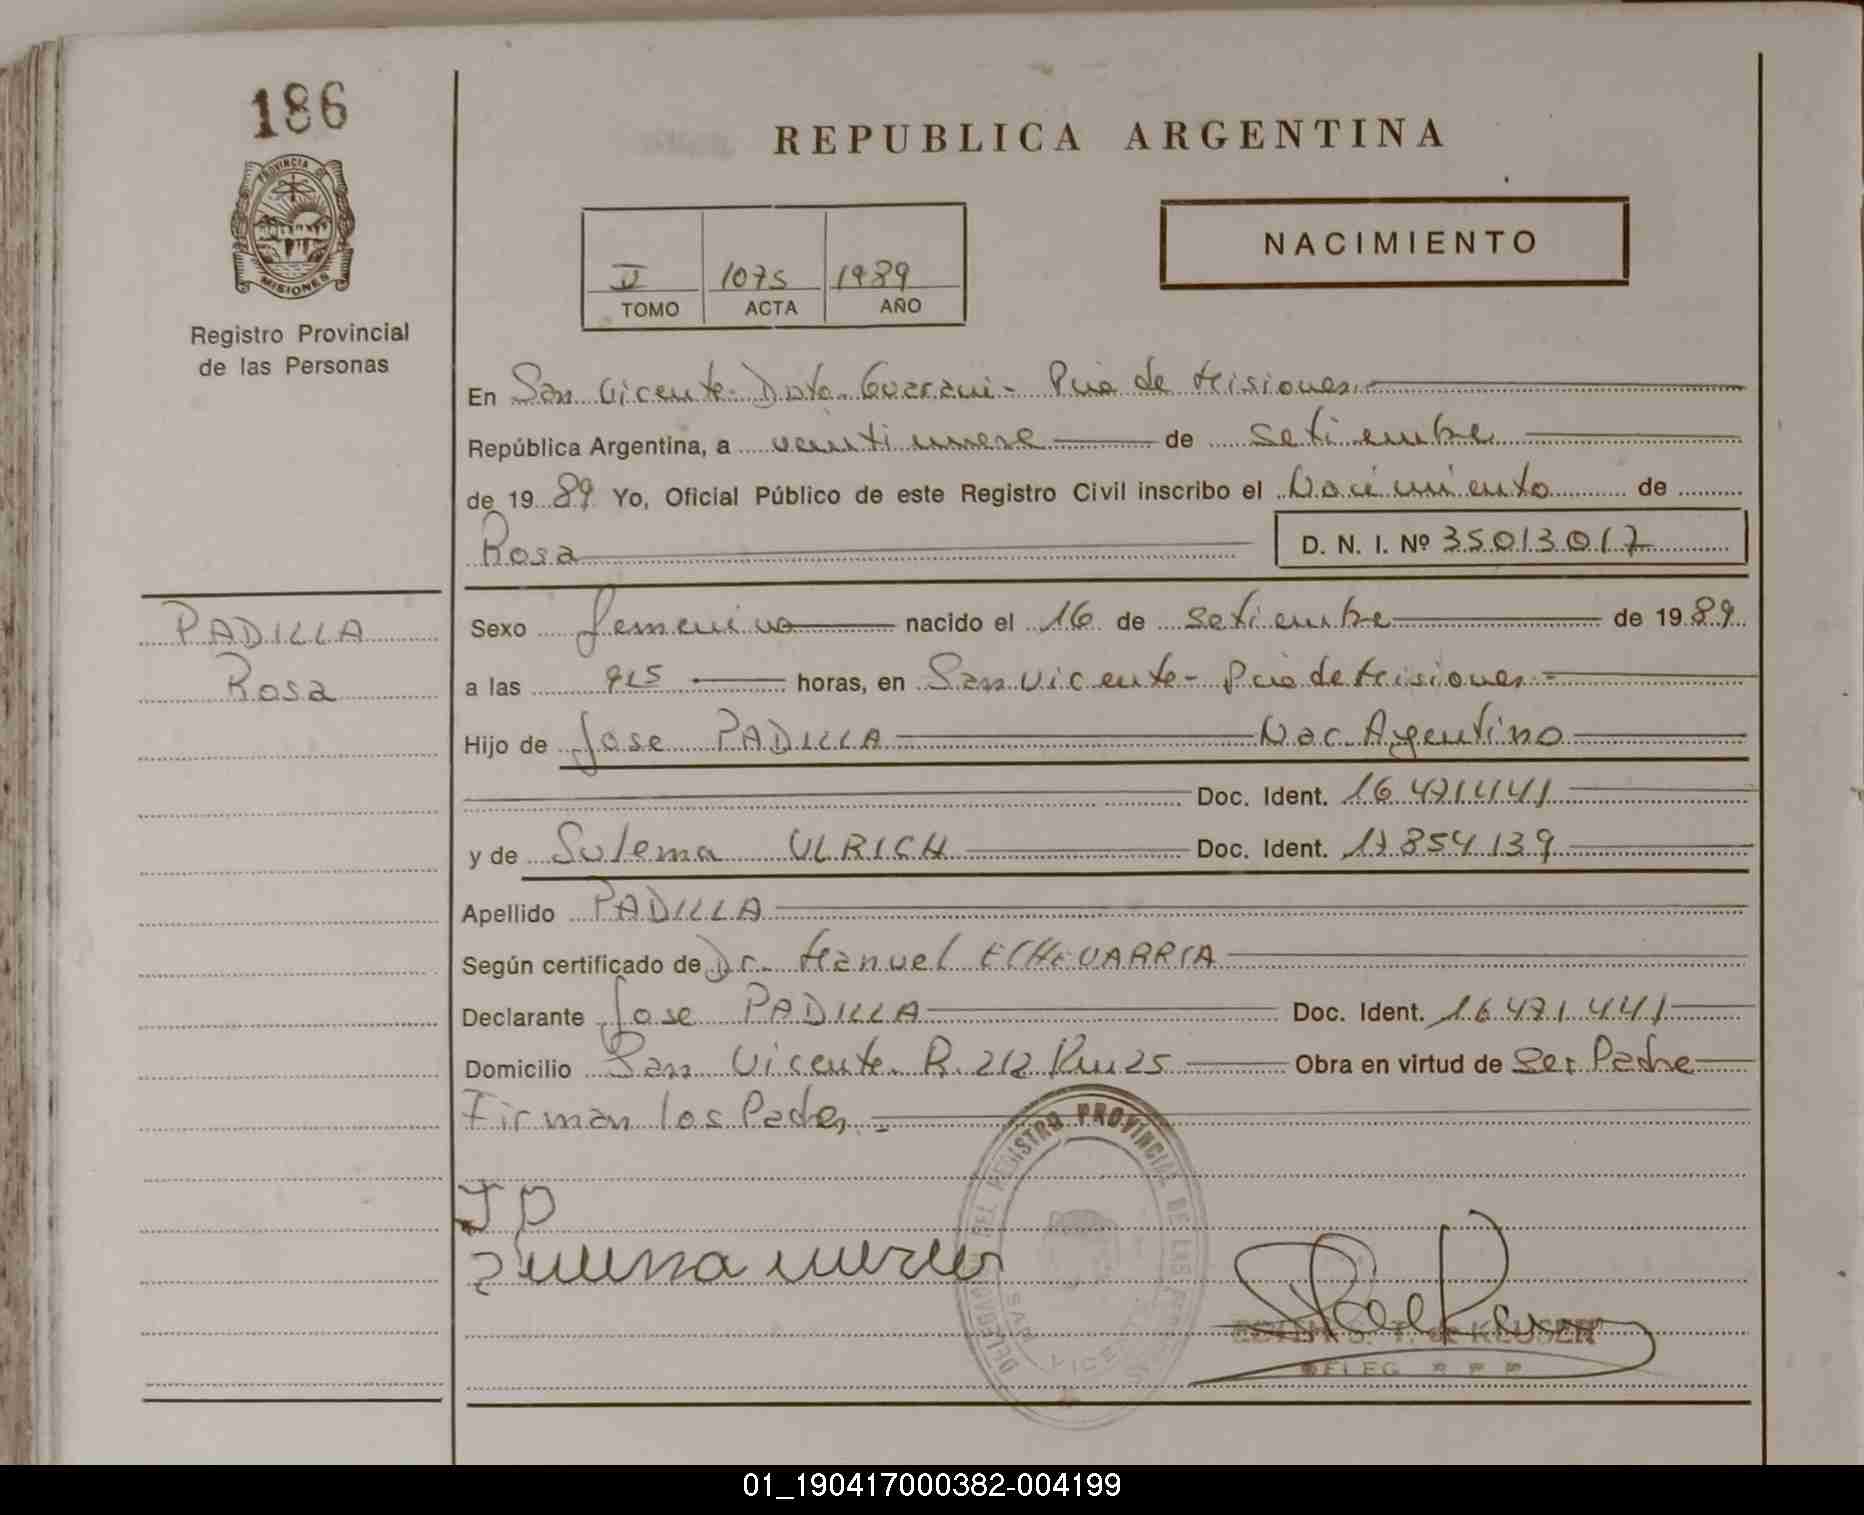 186
PROVINCIA DE
MISIONES
Registro Provincial
de las Personas
REPUBLICA ARGENTINA
NACIMIENTO
1075 1989
TOMO ACTA AÑO
En San Vicente - Dpto. Guarani - Pcia de Misiones
República Argentina, a veintinueve de setiembre
de 1989 Yo, Oficial Público de este Registro Civil inscribo el Nacimiento de
Rosa D. N. I. Nº 35013017
PADILLA
Rosa
Sexo femenino nacido el 16 de setiembre de 1989
a las 915 horas, en San Vicente - Pcia de Misiones -
Hijo de Jose PADILLA Nac. Argentino
Doc. Ident. 16.471.441
y de Sulema ULRICH Doc. Ident. 17.854.139
Apellido PADILLA
Según certificado de Dr. Manuel ECHEVARRIA
Declarante Jose PADILLA Doc. Ident. 16.471.441
Domicilio San Vicente R. 212 Km 25 Obra en virtud de Ser Padre
Firman los Padres -
J P
DELEGACION DEL REGISTRO PROVINCIAL DE LAS PERSONAS
SAN VICENTE
EDITH S. T. de KEUSER
DELEG R P P
01_190417000382-004199